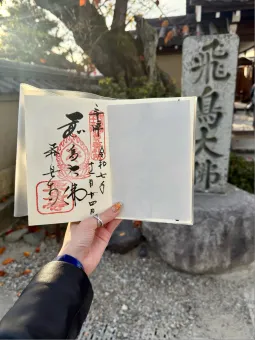 奉拝
令和七年
月十四日
飛鳥大佛
飛鳥寺
飛鳥大佛